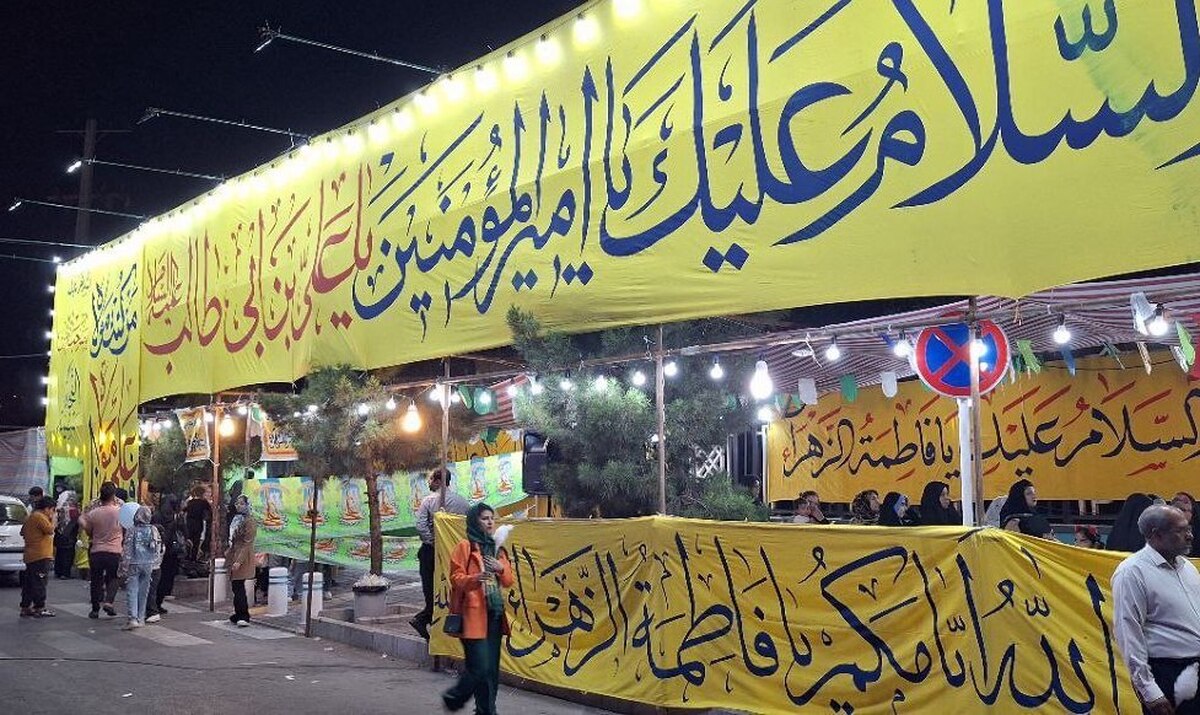 السّلامُ عَلیکَ یا امیرالمؤمنین یا عَلیّ بن ابی طالب علیه السلام
السّلامُ عَلَیکِ یا فاطِمَةُ الزَّهراء
اللّهُ ایّامَکُم یا فاطِمَةُ الزَّهراء